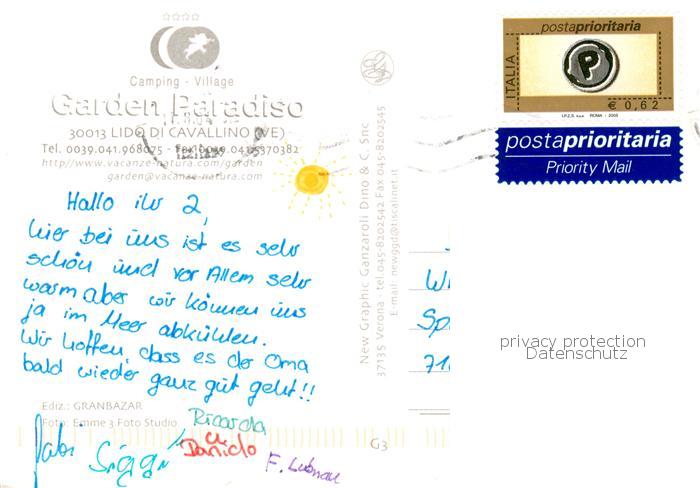 Camping - Village
Garden Paradiso
30013 LIDO DI CAVALLINO (VE)
Tel. 0039.041.968075 - Fax 0039.041.5370382
http//www.vacanze-natura.com/garden
garden@vacanze-natura.com
Hallo ihr 2,
hier bei uns ist es sehr
schön und vor Allem sehr
warm aber wir können uns
ja im Meer abkühlen.
Wir hoffen, dass es der Oma
bald wieder ganz gut geht!!
Ediz.: GRANBAZAR
Foto: Emme 3 Foto Studio
Gabi
Siggi
Ricarda
u.
Danielo
F.
New Graphic Ganzaroli Dino & C. Snc
37135 Verona - tel.045-8202542 Fax 045-8202545
E-mail: newggd@tiscalinet.it
G3
postaprioritaria
ITALIA
P
€ 0,62
I.P.Z.S. S.p.A. ROMA - 2005
postaprioritaria
Priority Mail
W
Sp
71
privacy protection
Datenschutz